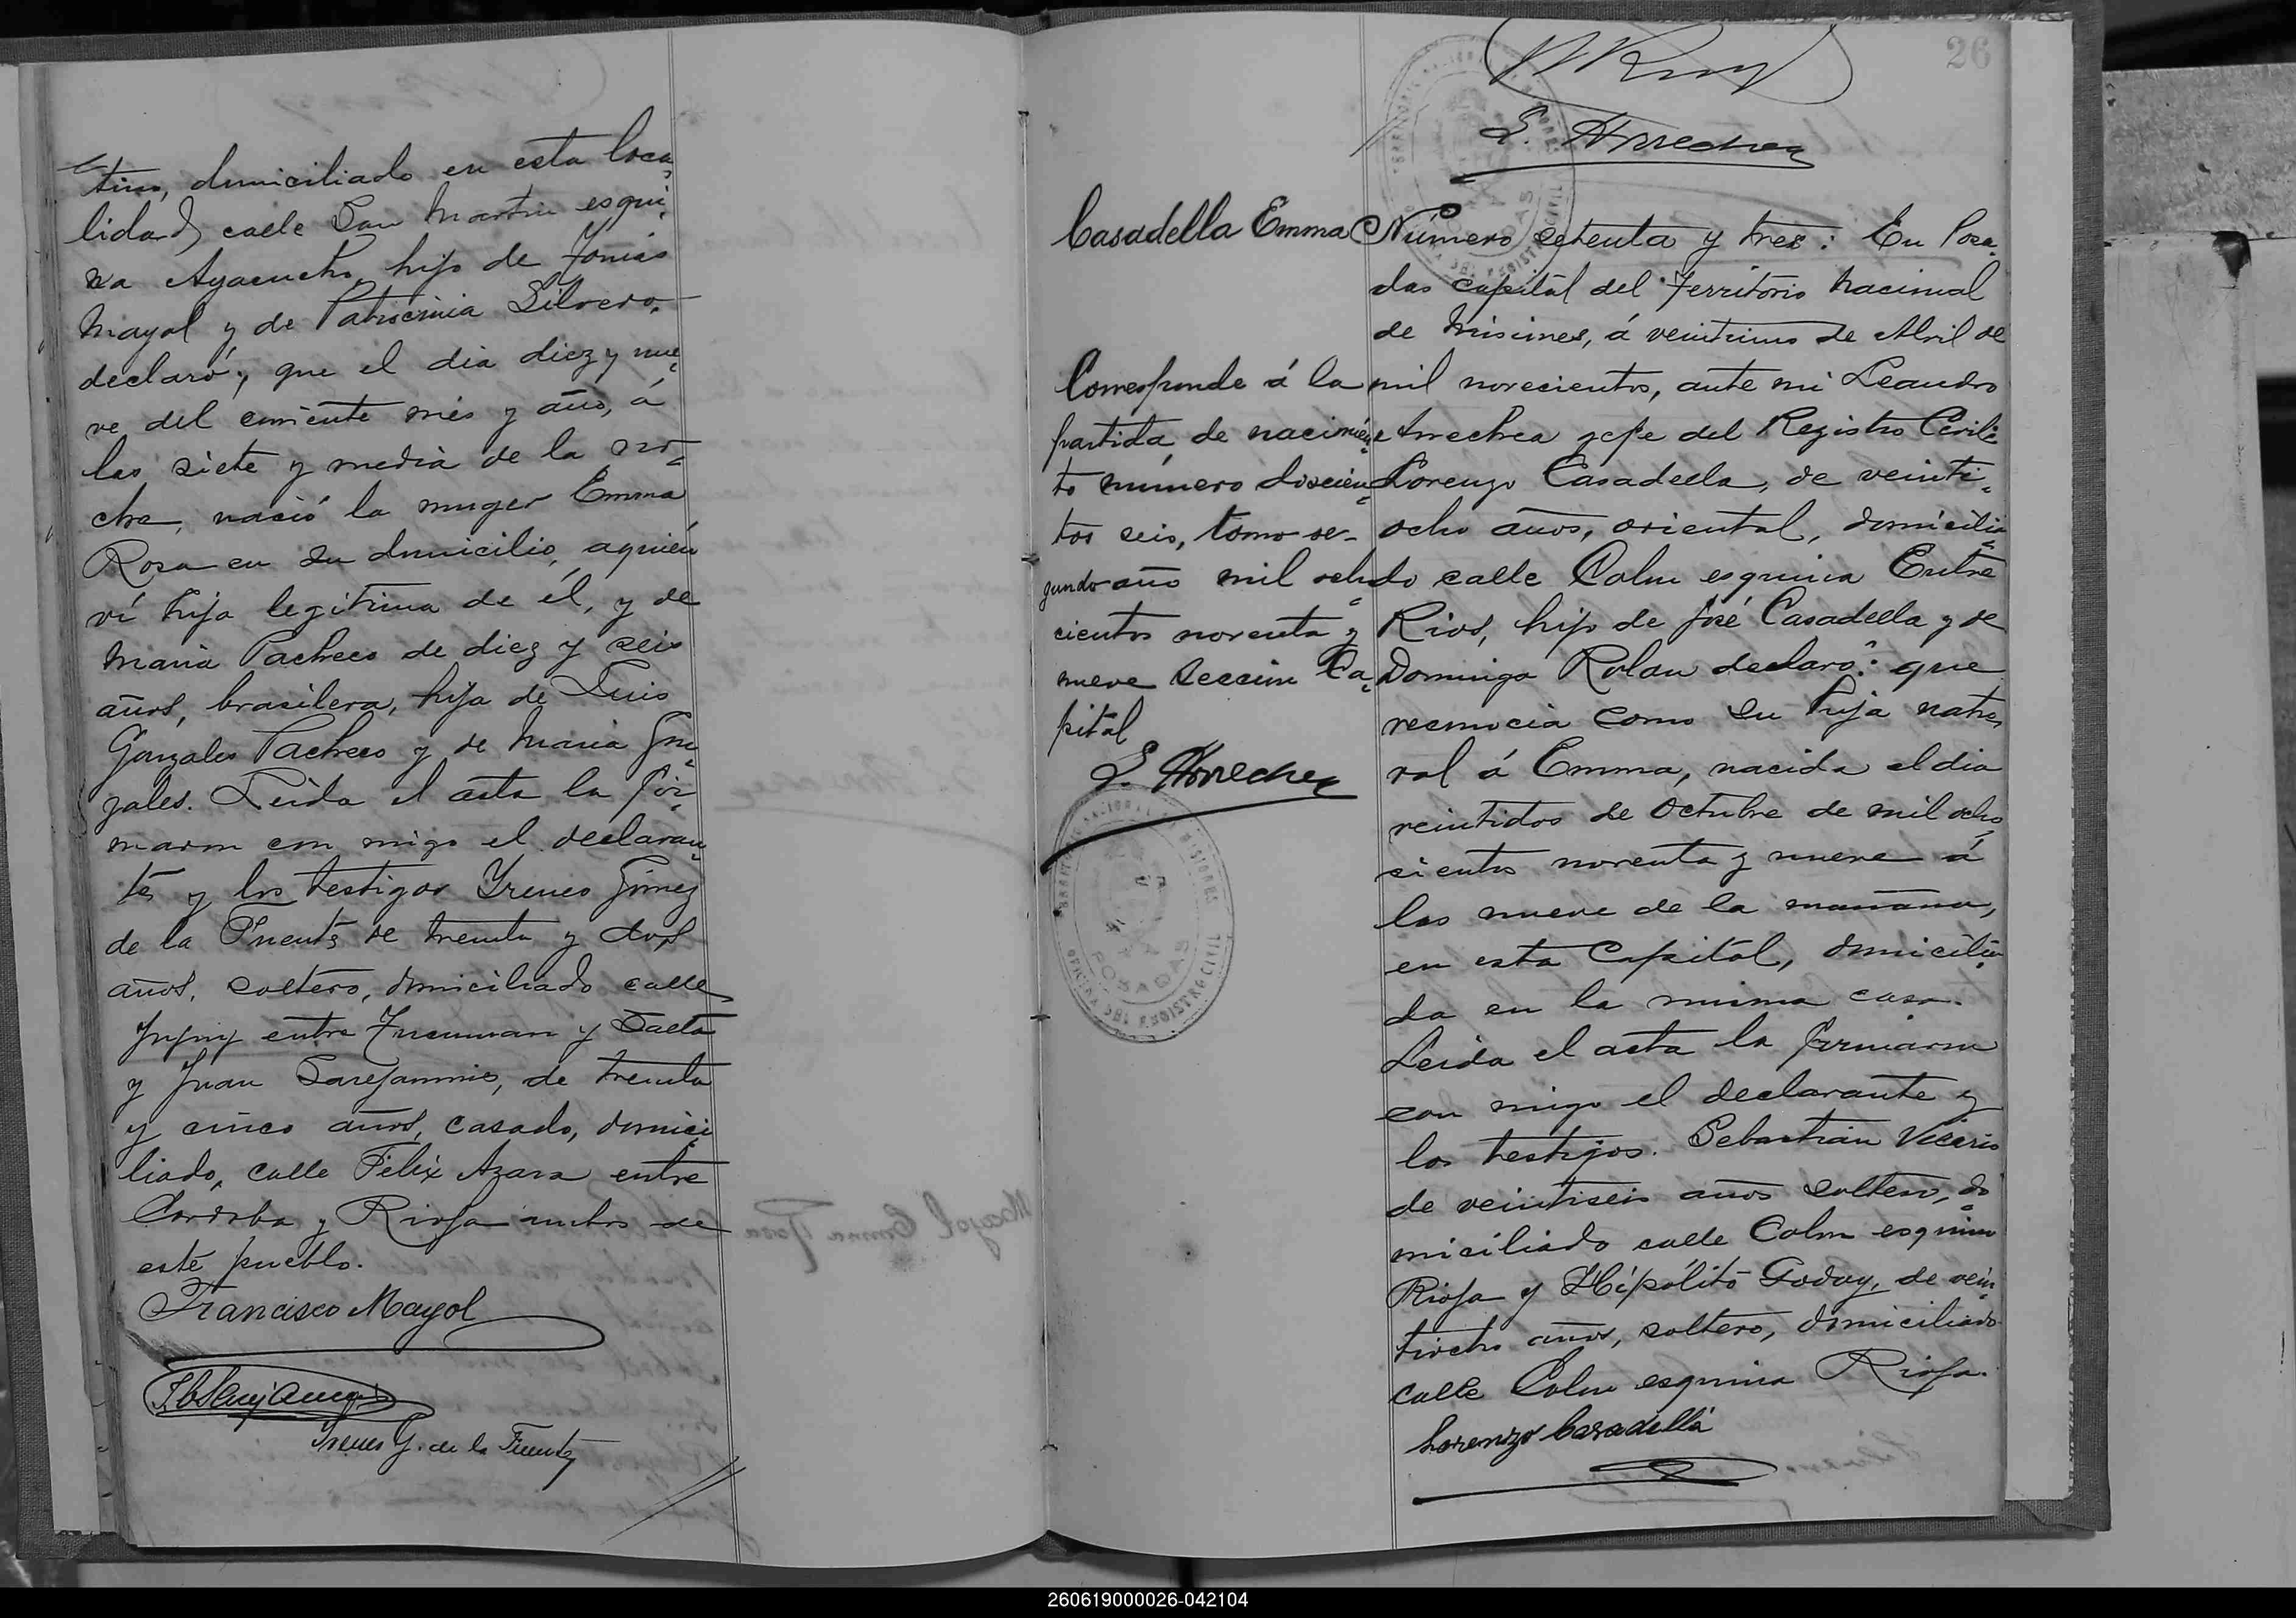 tino, domiciliado en esta loca
lidad, calle San Martin esqui
na Ayacucho, hijo de Tomás
Mayol y de Patrocinia Silvero,
declaró; que el dia diez y nue
ve del corriente mes y año, á
las siete y media de la no
che, nació la muger Emma
Rosa en su domicilio, aquien
ví hija legítima de él, y de
Maria Pacheco de diez y seis
años, brasilera, hija de Luis
Gonzales Pacheco y de Maria Gon
zales. Leida el acta la fir
maron con migo el declaran
te y los testigos Yreneo Gómez
de la Fuente de treinta y dos
años, soltero, domiciliado calle
Jujuy entre Tucuman y Salta
y Juan, de treinta
y cinco años, casado, domici
liado, calle Félix Azara entre
Cordoba y Rioja ambos de
este pueblo.
Francisco Mayol
Yreneo G. de la Fuente
26
L. Arrechea
Casadella Emma
Corresponde á la
partida de nacimien
to número doscien
tos seis, tomo se-
gundo año mil ocho
cientos noventa y
nueve Seccion Ca
pital
L. Arrechea
POSADAS
Número setenta y tres: En Posa
das capital del Territorio Nacional
de Misiones, á veintiuno de Abril de
mil novecientos, ante mi Leandro
Arrechea gefe del Registro Civil
Lorenzo Casadella, de veinti
ocho años, oriental, domicilia
do calle Colon esquina Entre
Rios, hijo de José Casadella y de
Dominga Rolan declaró: que
reconocia como su hija natu
ral á Emma, nacida el dia
veintidos de Octubre de mil ocho
cientos noventa y nueve á
las nueve de la mañana,
en esta Capital, domicilia
da en la misma casa.
Leida el acta la firmaron
con migo el declarante y
los testigos. Sebastian
de veintiseis años soltero, do
miciliado calle Colon esquina
Rioja y Hipólito Godoy, de vein
tiocho años, soltero, domiciliado
calle Colon esquina Rioja.
Lorenzo Casadella
260619000026-042104